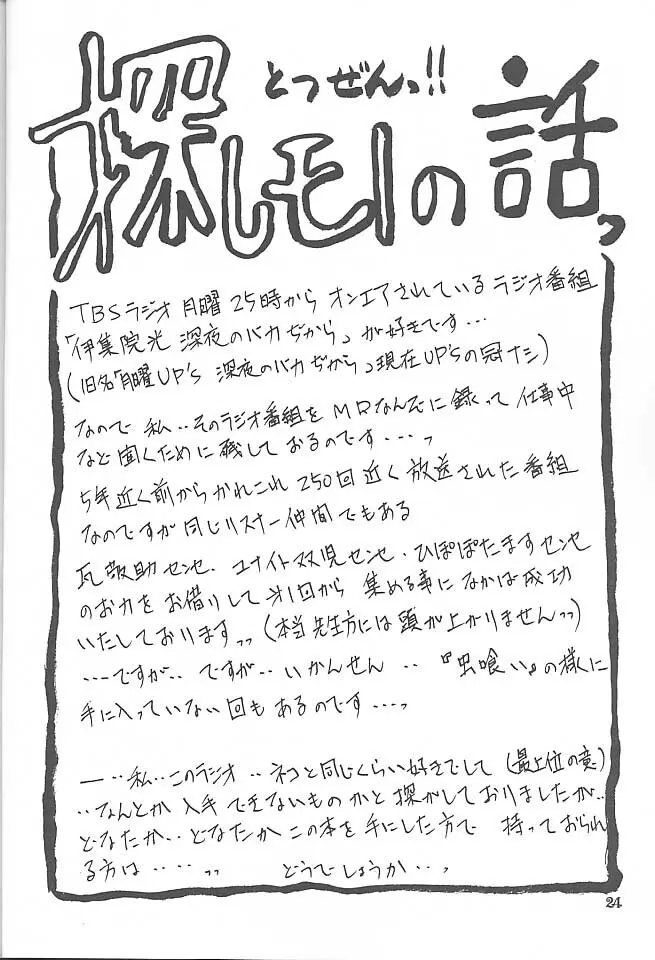 とつぜんっ!!
探しモノの話っ
TBSラジオ 月曜 25時から オンエアされている ラジオ番組
「伊集院光 深夜のバカぢから」が好きです…
(旧名「月曜UP's 深夜のバカぢから」現在UP'sの冠ナシ)
なので 私‥そのラジオ番組を MDなんぞに録って 仕事中
など聞くために残しておるのです‥‥っ
5年近く前からかれこれ 250回近く 放送された番組
なのですが同じリスナー仲間でもある
センセ、ユナイト双児センセ・ひぽぽたますセンセ
のお力をお借りして 第1回から 集める事に なかば成功
いたしております〟(本当先生方には頭が上がりませんっっ)
‥‥ですが‥ ですが‥ いかんせん ‥ 『虫喰い』の様に
手に入っていない回もあるのです‥‥っ
―‥私‥このラジオ ‥ネコと同じくらい好きでして(最上位の意)
‥なんとか入手できないものかと探がしておりましたが‥
どなたか‥どなたかこの本を手にした方で 持っておられ
る方は‥‥〟 どうでしょうか‥っ
24